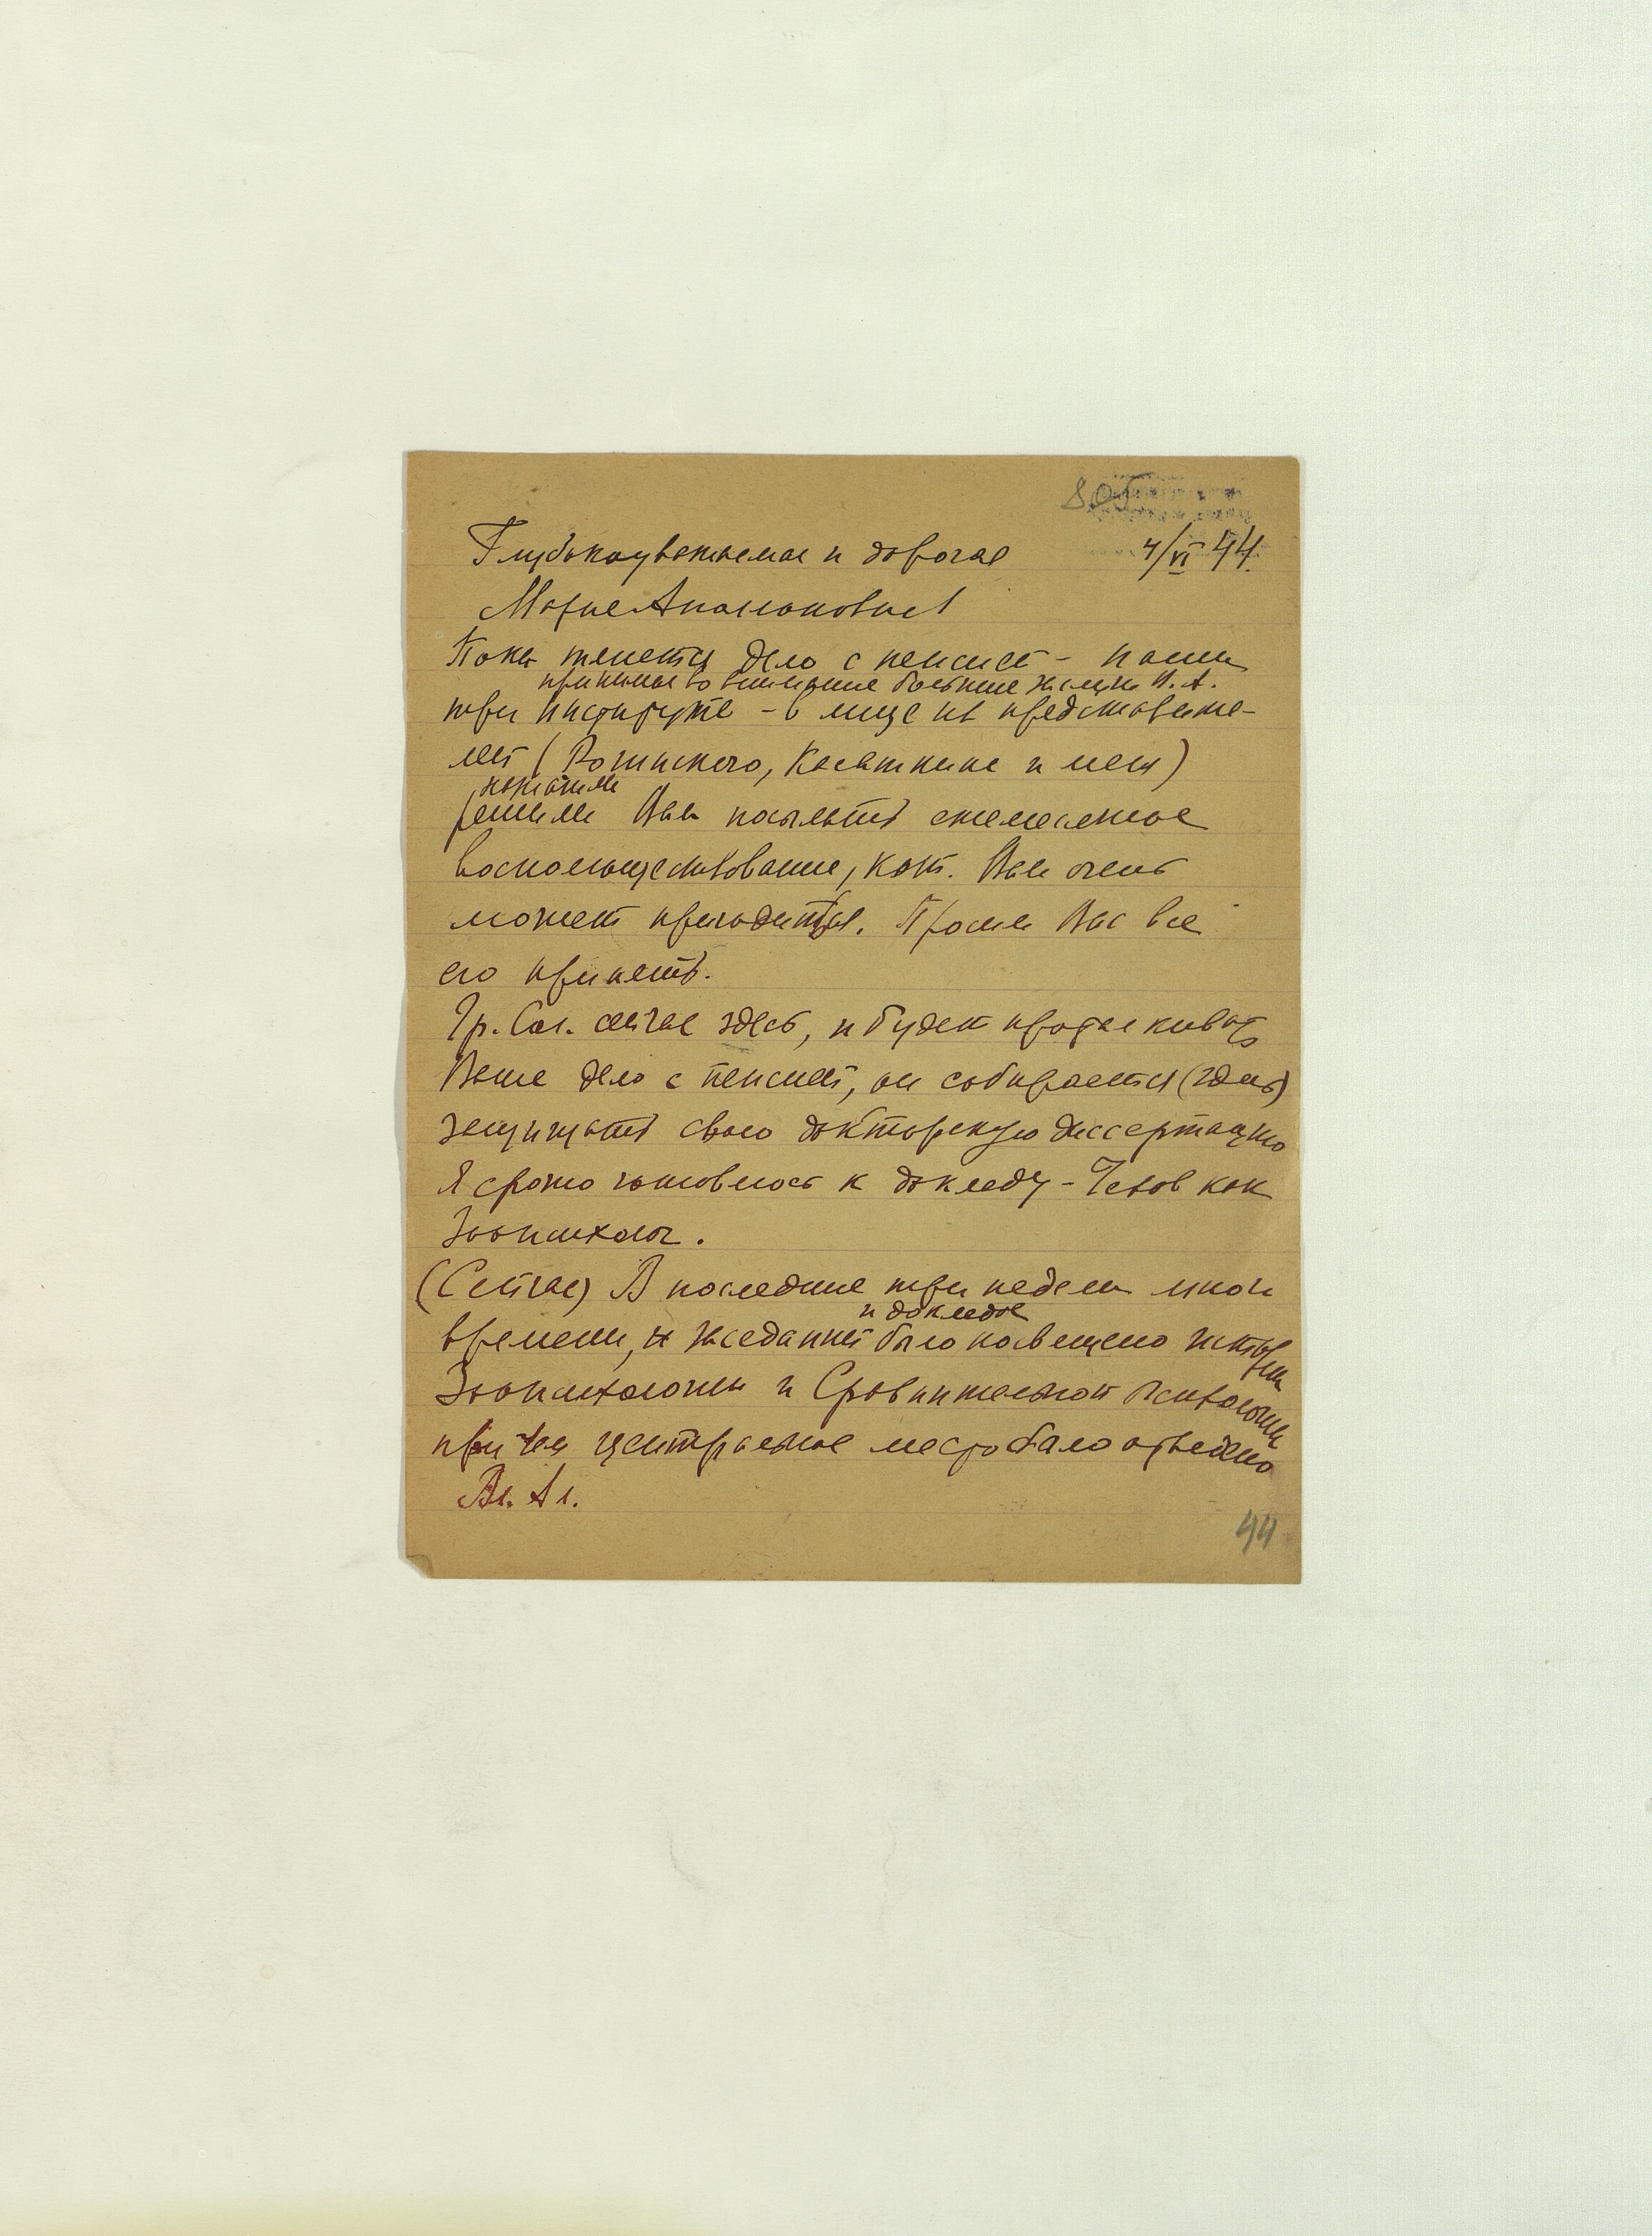 Глубокоуважаемая и дорогая 4/VI 44.
Мария Аполлоновна!
Пока тянется дело с пенсией – наши
принимая во внимание большие заслуги В. А.
три института – в лице их представите-
лей (Рогинского, Касаткина и меня)
решили Вам посылать ежемесячное
вспомоществование, кот. Вам очень
может пригодиться. Просим Вас все
его принять.
Гр. Сол. сейчас здесь, и будет проталкивать
Ваше дело с пенсией, он собирается (здесь)
защищать свою докторскую диссертацию
Я срочно готовлюсь к докладу – Чехов как
Зоопсихолог.
(Сейчас) В последние три недели много
и докладов
времени, и заседаний было посвящено истории
Зоопсихологии и Сравнительной психологии
при чем центральное место было отведено
Вл. Ал.
44